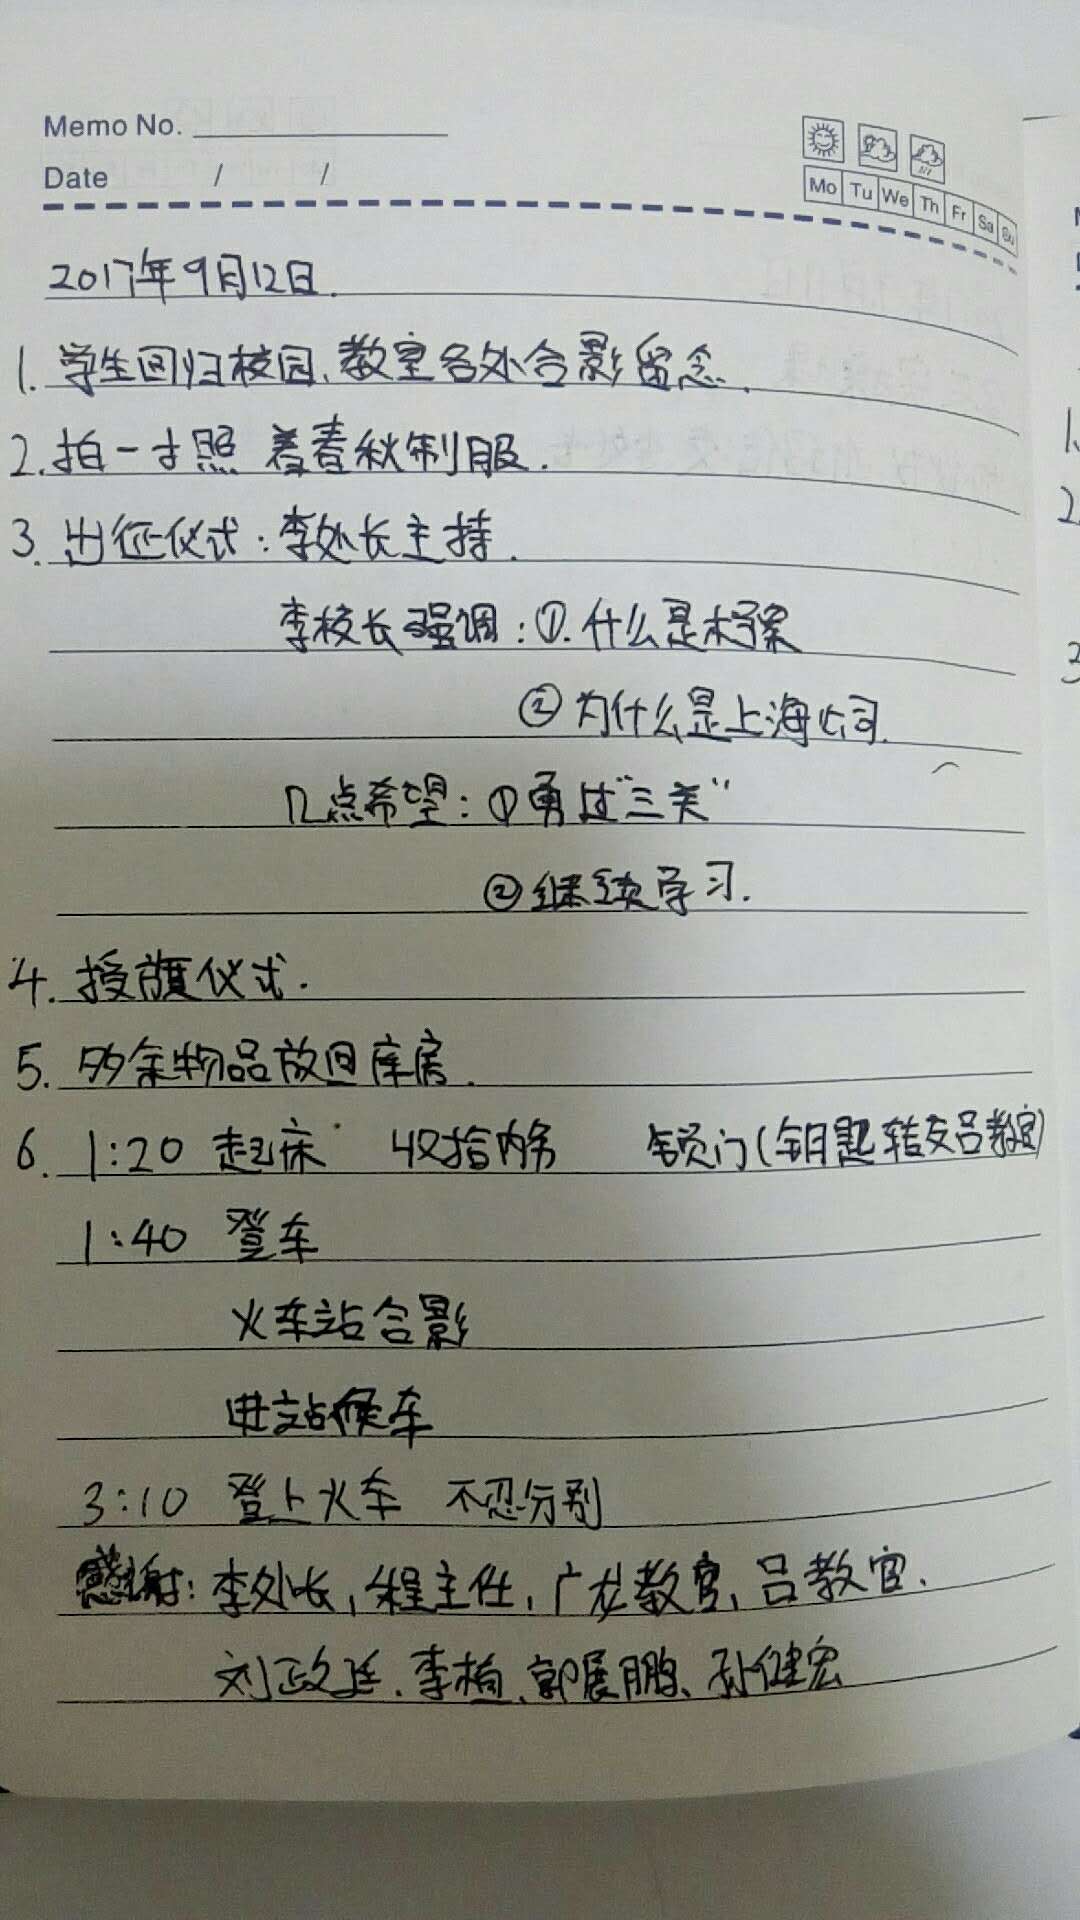 Memo No.
Date / /
Mo Tu We Th Fr Sa Su
2017年9月12日.
1. 学生回归校园、教室各处合影留念.
2. 拍一寸照 着春秋制服.
3. 出征仪式:李处长主持.
李校长强调:①.什么是档案
②为什么是上海公司.
几点希望:①勇过"三关"
②继续学习.
4. 授旗仪式.
5. 多余物品放回库房.
6. 1:20 起床 收拾内务 锁门(钥匙转交吕教官)
1:40 登车
火车站合影
进站候车
3:10 登上火车 不忍分别
感谢:李处长,程主任,广龙教官,吕教官.
刘政廷、李植、郭展鹏、孙健宏
1.
2
3